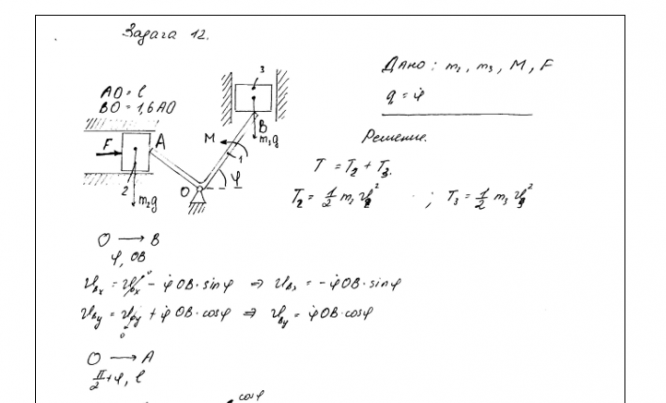 Задача 12.
AO = l
BO = 1,6 AO
Дано: m₂, m₃, M, F
q = φ
Решение.
3
B
m₃g
M
1
F
A
2
m₂g
O
φ
T = T₂ + T₃
T₂ = 1/2 m₂ v₂² ; T₃ = 1/2 m₃ v₃²
O → B
φ, OB
v_Bx = v_Ox⁰ − φ̇ OB·sinφ ⇒ v_Bx = −φ̇ OB·sinφ
v_By = v_Oy + φ̇ OB·cosφ ⇒ v_By = φ̇ OB·cosφ
0
O → A
π/2+φ, l
cosφ